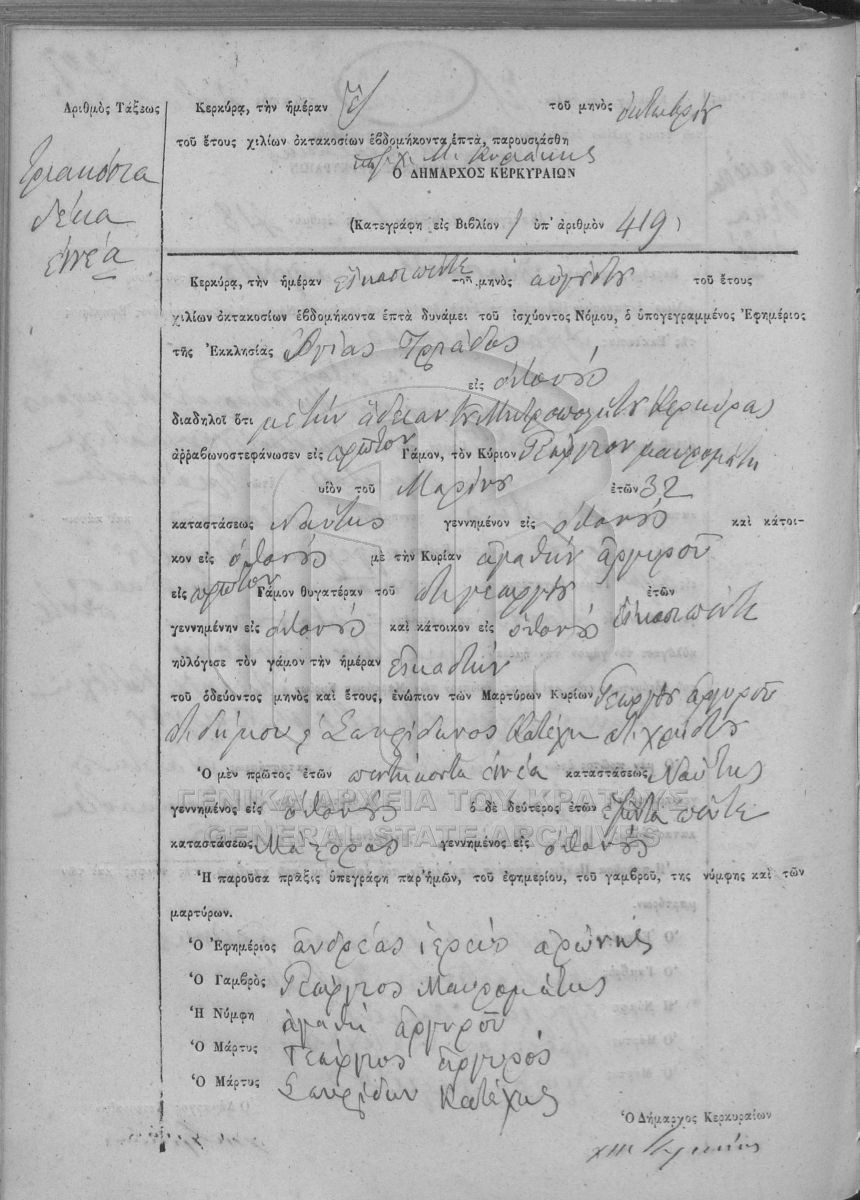 Ἀριθμὸς Τάξεως
Τριακόσια
δέκα
ἐννέα
Κερκύρᾳ, τὴν ἡμέραν τοῦ μηνὸς ὀκτωβρίου
τοῦ ἔτους χιλίων ὀκτακοσίων ἑβδομήκοντα ἑπτὰ, παρουσιάσθη
Ὁ ΔΗΜΑΡΧΟΣ ΚΕΡΚΥΡΑΙΩΝ
(Κατεγράφη εἰς Βιβλίον 1 ὑπ' ἀριθμὸν 419)
Κερκύρᾳ, τὴν ἡμέραν εἰκοσιπέντε τοῦ μηνὸς αὐγούστου τοῦ ἔτους
χιλίων ὀκτακοσίων ἑβδομήκοντα ἑπτὰ δυνάμει τοῦ ἰσχύοντος Νόμου, ὁ ὑπογεγραμμένος Ἐφημέριος
τῆς Ἐκκλησίας Ἁγίας Τριάδος
εἰς
διαδηλοῖ ὅτι μὲ τὴν ἄδειαν τοῦ Μητροπολίτου Κερκύρας
ἀῤῥαβωνοστεφάνωσεν εἰς πρῶτον Γάμον, τὸν Κύριον Γεώργιον μαυρομάτη
υἱὸν τοῦ Μαρίνου ἐτῶν 32
καταστάσεως Ναύτης γεννημένον εἰς καὶ κάτοι-
κον εἰς μὲ τὴν Κυρίαν ἀγαθὴν ἀργυροῦ
εἰς πρῶτον Γάμον θυγατέραν τοῦ γεωργίου ἐτῶν
γεννημένην εἰς καὶ κάτοικον εἰς εἰκοσιπέντε
ηὐλόγισε τὸν γάμον τὴν ἡμέραν
τοῦ ὁδεύοντος μηνὸς καὶ ἔτους, ἐνώπιον τῶν Μαρτύρων Κυρίων Γεωργίου ἀργυροῦ
Σπυρίδωνος Κατέχη
Ὁ μὲν πρῶτος ἐτῶν πεντήκοντα ἐννέα καταστάσεως Ναύτης
ΓΕΝΙΚΑ ΑΡΧΕΙΑ ΤΟΥ ΚΡΑΤΟΥΣ
γεννημένος εἰς ὁ δὲ δεύτερος ἐτῶν ἑξῆντα πέντε
GENERAL STATE ARCHIVES
καταστάσεως γεννημένος εἰς
Ἡ παροῦσα πρᾶξις ὑπεγράφη παρ' ἡμῶν, τοῦ ἐφημερίου, τοῦ γαμβροῦ, της νύμφης καὶ τῶν
μαρτύρων.
Ὁ Ἐφημέριος ἀνδρέας ἱερεὺς
Ὁ Γαμβρὸς Γεώργιος Μαυρομάτης
Ἡ Νύμφη ἀγαθὴ ἀργυροῦ
Ὁ Μάρτυς Γεώργιος ἀργυρός
Ὁ Μάρτυς Σπυρίδων Κατέχης
Ὁ Δήμαρχος Κερκυραίων